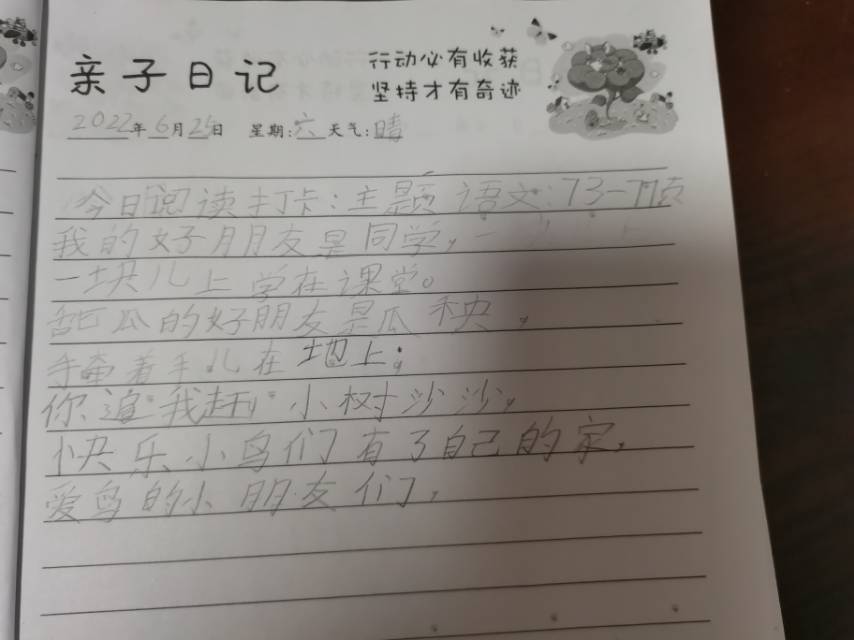 亲子日记
行动必有收获
坚持才有奇迹
2022年6月25日 星期:六 天气:晴
今日阅读打卡:主题 语文:73-77页
我的好朋友是同学,
一块儿上学在课堂。
甜瓜的好朋友是瓜秧,
手牵着手儿在地上;
你追我赶 小树沙沙,
快乐小鸟们有了自己的家,
爱鸟的小朋友们,